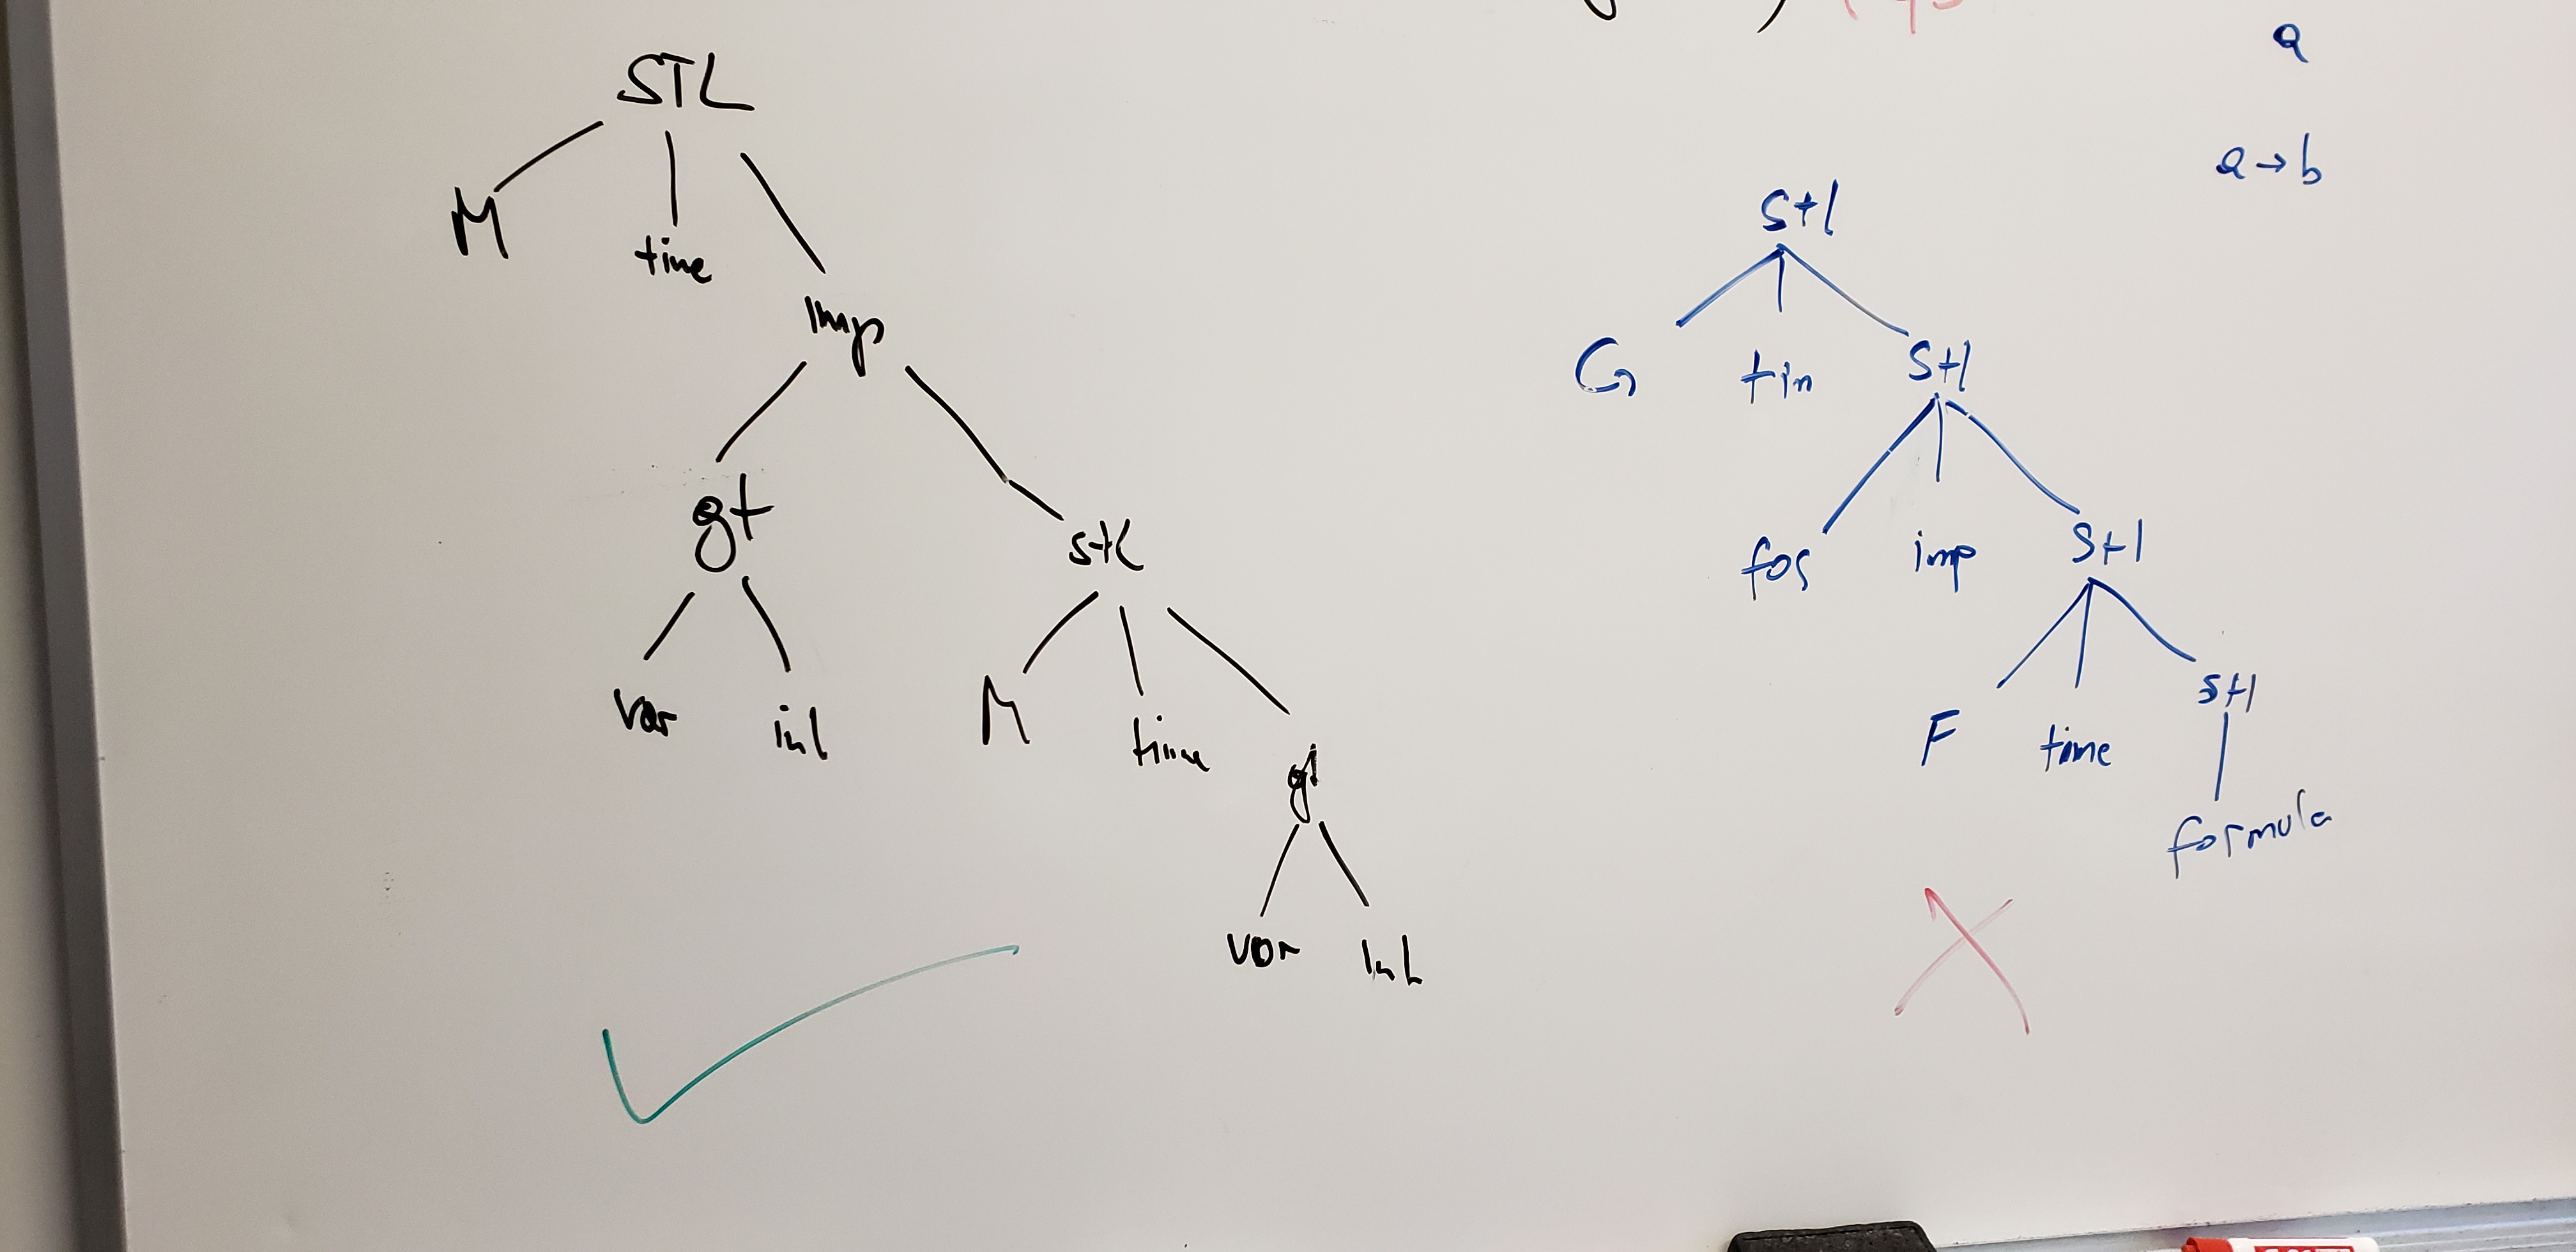 STL
M time
Imp
gt stl
var int
M time gt
var Int
a
a → b
Stl
G tim Stl
for imp Stl
F time stl
formula